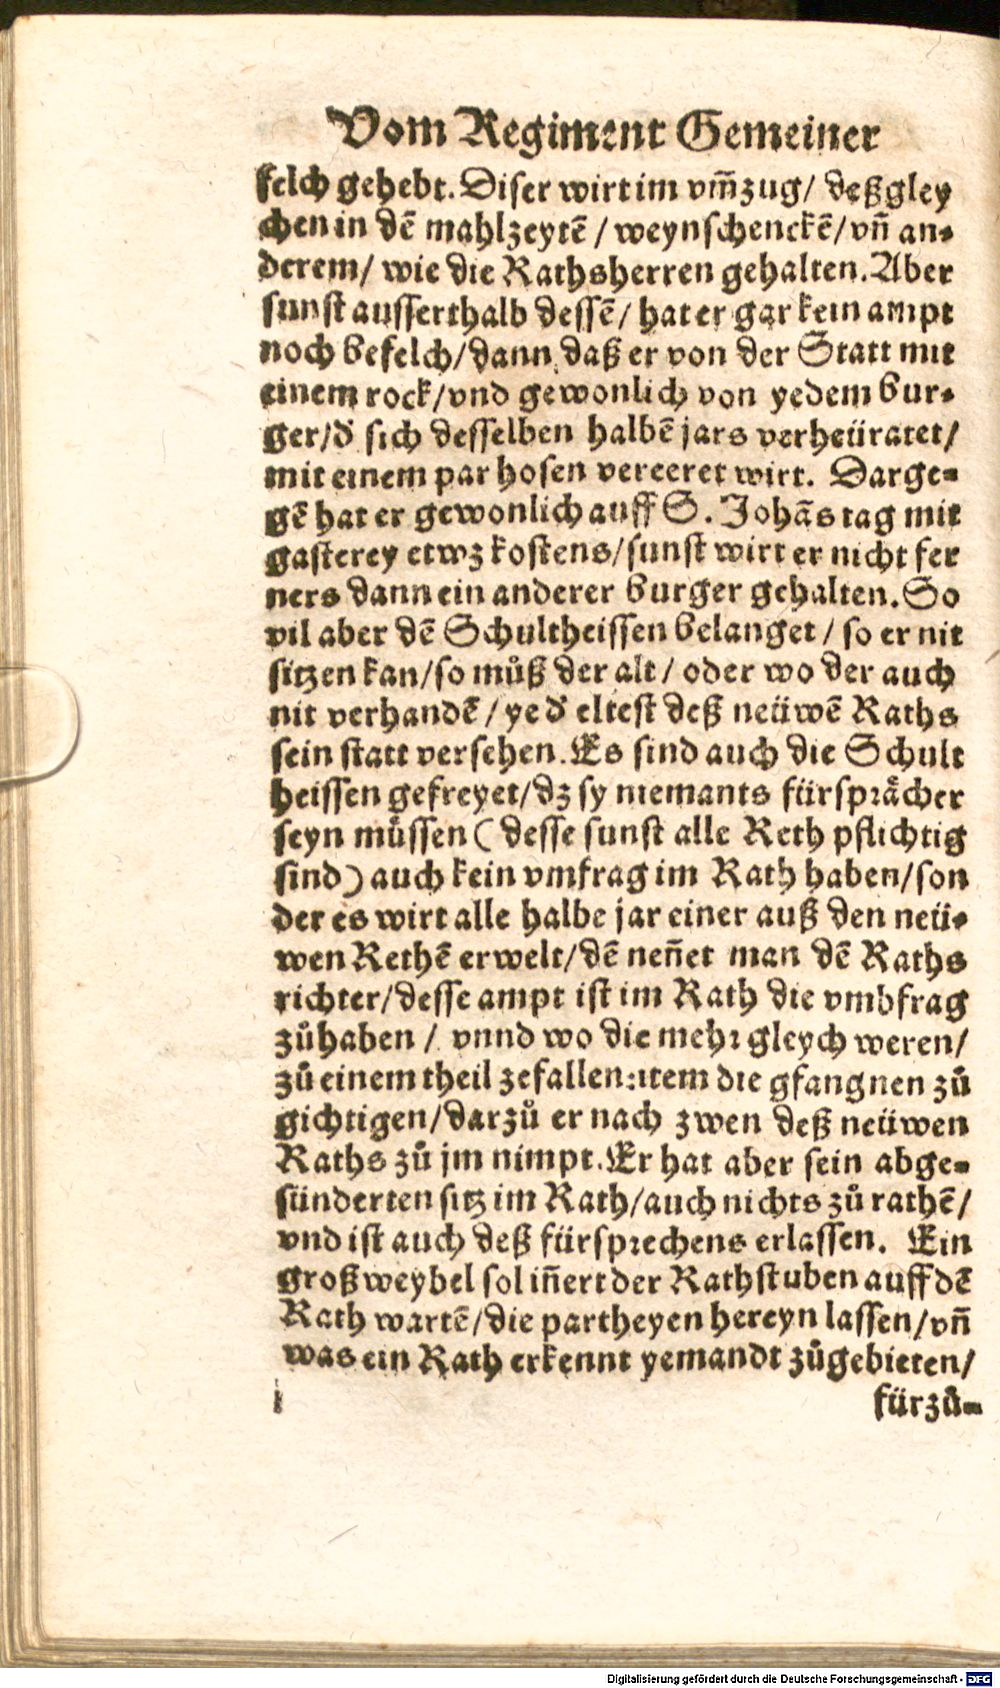 Vom Regiment Gemeiner
felch gehebt. Diser wirt im vm̃zug / deßgley
chen in dẽ mahlzeytẽ / weynschenckẽ / vñ an-
derem / wie die Rathsherren gehalten. Aber
sunst ausserthalb dessẽ / hat er gar kein ampt
noch befelch / dann daß er von der Statt mit
einem rock / vnd gewonlich von yedem bur-
ger / d' sich desselben halbẽ jars verheüratet /
mit einem par hosen vereeret wirt. Darge-
gẽ hat er gewonlich auff S. Johãs tag mit
gasterey etwz kostens / sunst wirt er nicht fer
ners dann ein anderer burger gehalten. So
vil aber dẽ Schultheissen belanget / so er nit
sitzen kan / so můß der alt / oder wo der auch
nit verhandẽ / ye d' eltest deß neüwẽ Raths
sein statt versehen. Es sind auch die Schult
heissen gefreyet / dz sy niemants fürsprächer
seyn müssen ( desse sunst alle Reth pflichtig
sind ) auch kein vmfrag im Rath haben / son
der es wirt alle halbe jar einer auß den neü-
wen Rethẽ erwelt / dẽ neñet man dẽ Raths
richter / desse ampt ist im Rath die vmbfrag
zůhaben / vnnd wo die mehr gleych weren /
zů einem theil zefallen: item die gfangnen zů
gichtigen / darzů er nach zwen deß neüwen
Raths zů jm nimpt. Er hat aber sein abge-
sünderten sitz im Rath / auch nichts zů rathẽ /
vnd ist auch deß fürsprechens erlassen. Ein
großweybel sol iñert der Rathstuben auff dẽ
Rath wartẽ / die partheyen hereyn lassen / vñ
was ein Rath erkennt yemandt zůgebieten /
fürzů-
Digitalisierung gefördert durch die Deutsche Forschungsgemeinschaft - DFG